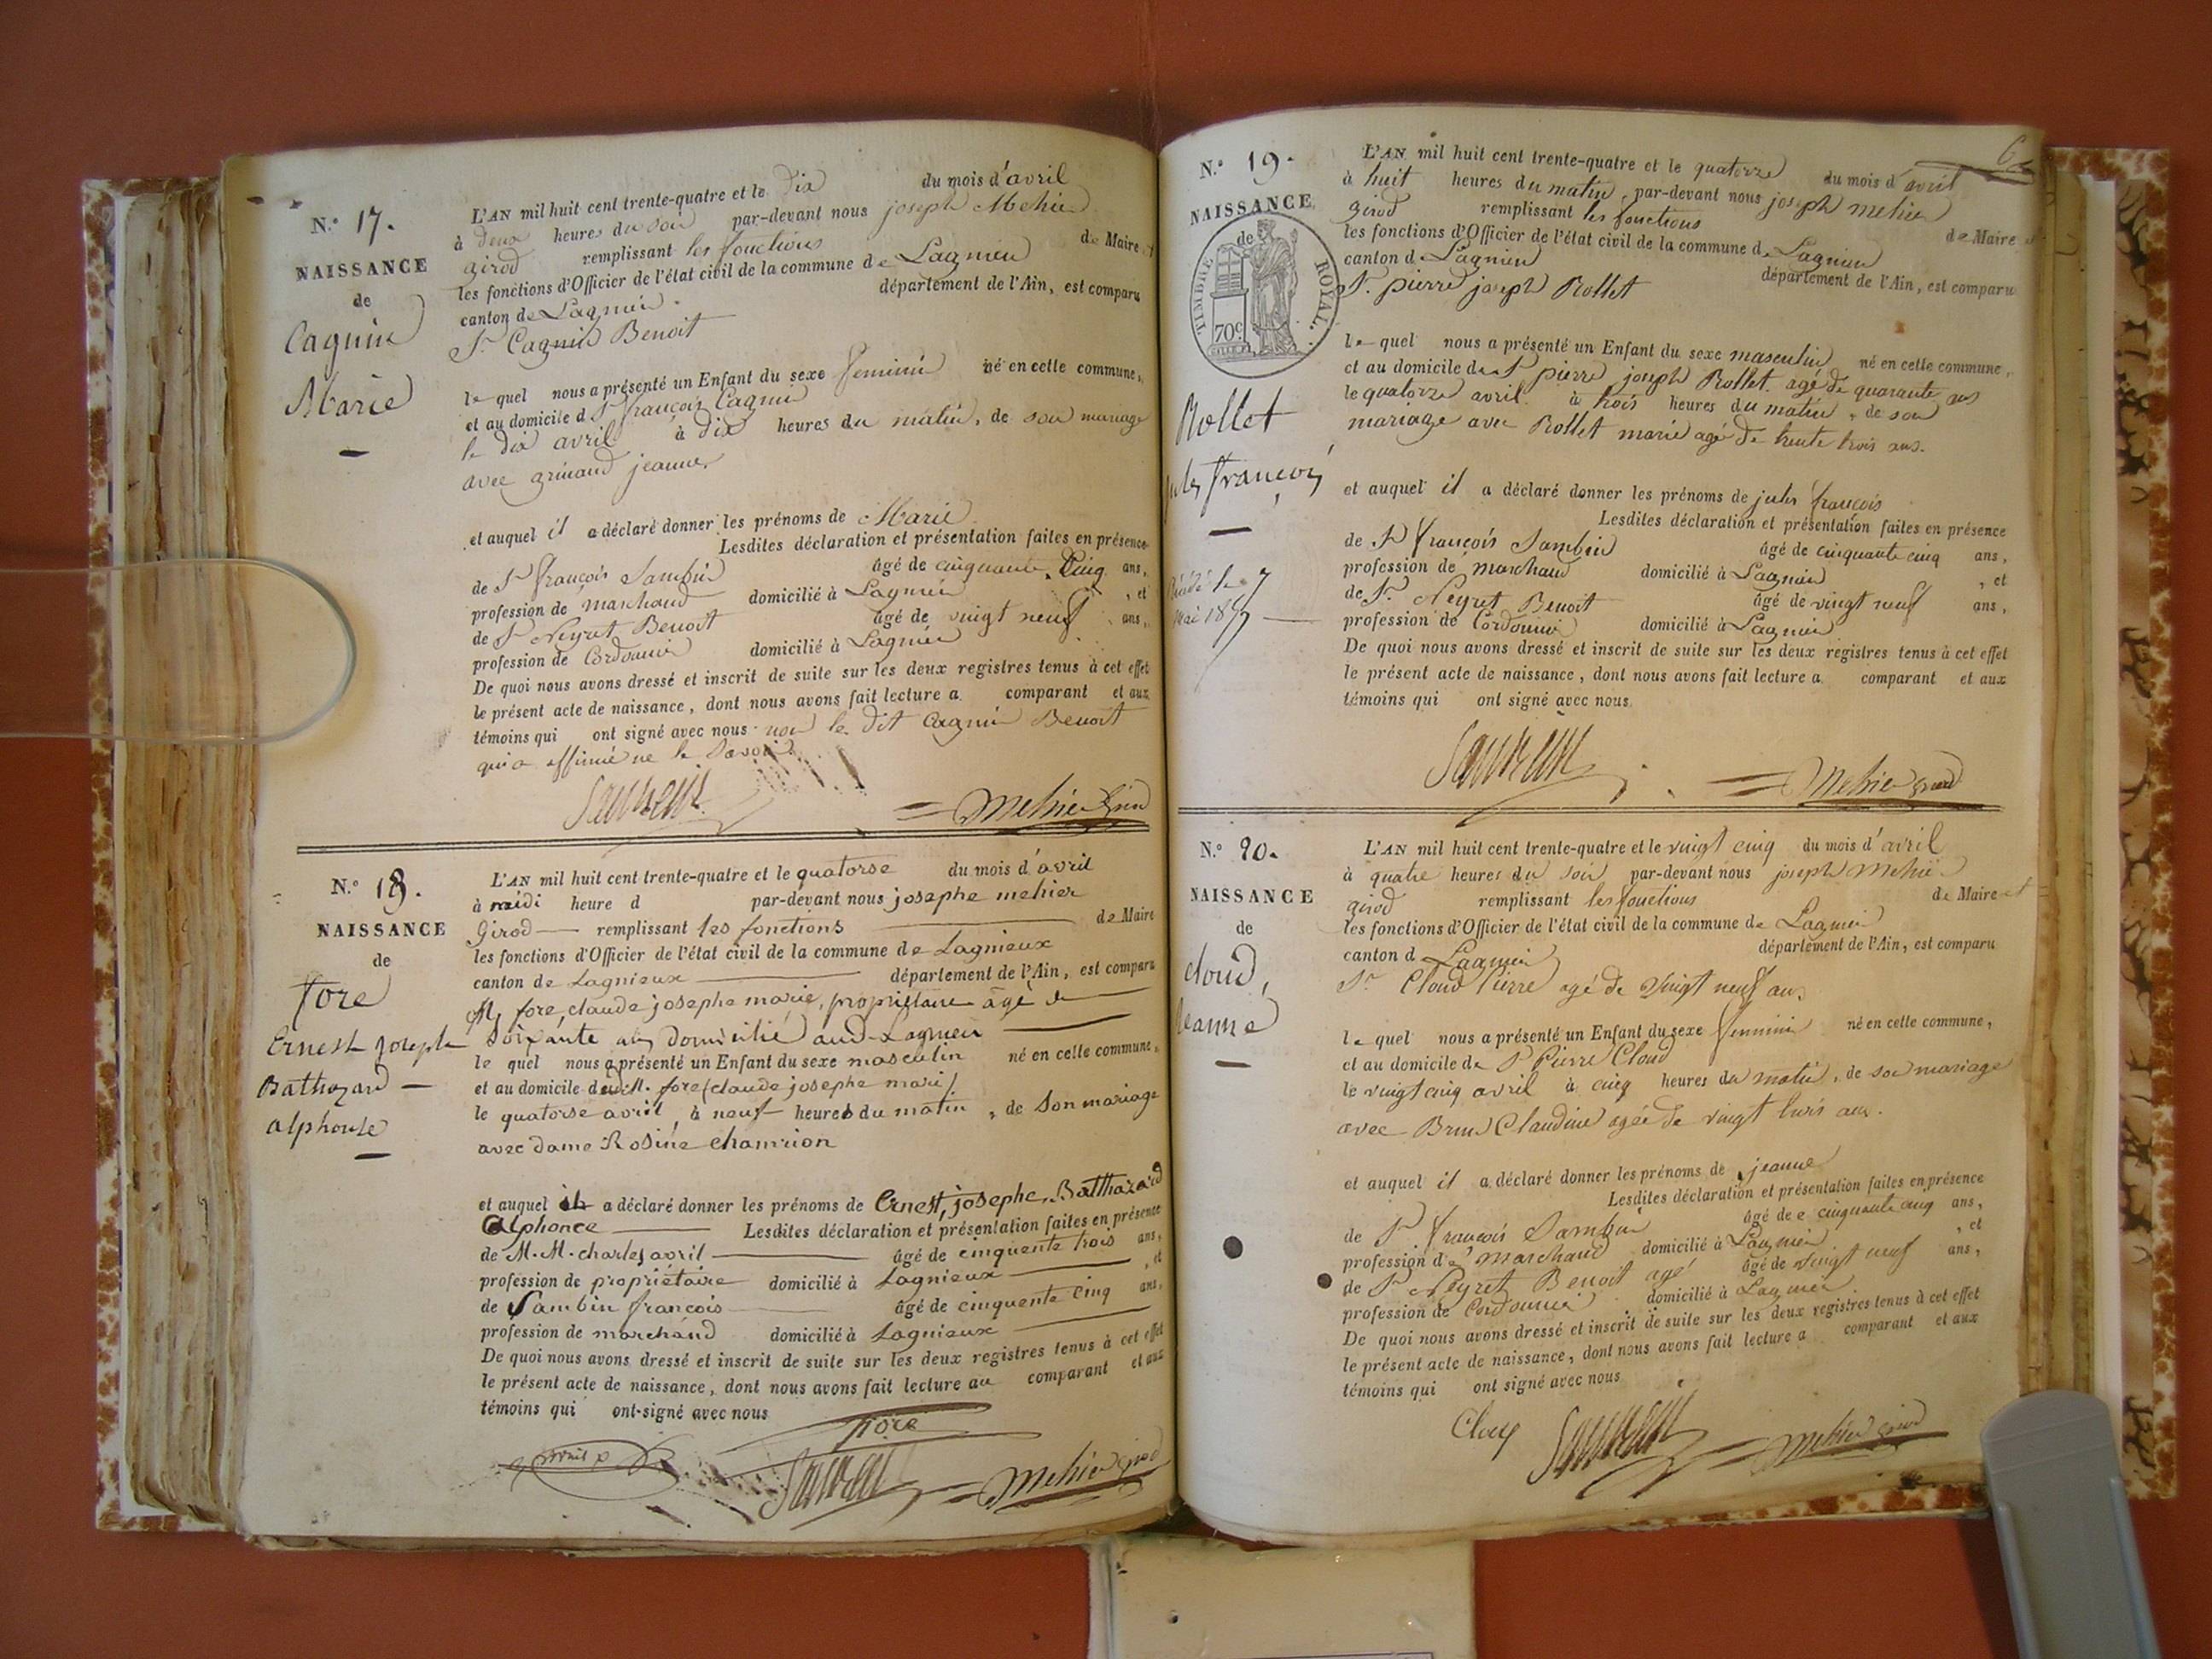 N.° 17.
NAISSANCE
de
Cagnin
Marie
L'AN mil huit cent trente-quatre et le dix du mois d'avril
à deux heures du soir par-devant nous joseph Mehier
girod remplissant les fonctions de Maire et
les fonctions d'Officier de l'état civil de la commune de Lagnieu
canton de Lagnieu département de l'Ain, est comparu
Sr Cagnin Benoit
le quel nous a présenté un Enfant du sexe feminin né en cette commune,
et au domicile d Sr françois Cagnin
le dix avril à dix heures du matin, de son mariage
avec grinand jeanne
et auquel il a déclaré donner les prénoms de Marie
Lesdites déclaration et présentation faites en présence
de Sr françois Sambin âgé de cinquante cinq ans,
profession de marchand domicilié à Lagnieu , et
de Sr Neyret Benoit âgé de vingt neuf ans,
profession de Cordonnier domicilié à Lagnieu
De quoi nous avons dressé et inscrit de suite sur les deux registres tenus à cet effet
le présent acte de naissance, dont nous avons fait lecture a comparant et aux
témoins qui ont signé avec nous non le dit Cagnin Benoit
qui a affirmé ne le savoir.
Sambin
Mehier Girod
N.° 18.
NAISSANCE
de
fore
Ernest joseph
Bathazard
alphonse
L'AN mil huit cent trente-quatre et le quatorse du mois d'avril
à midi heure d par-devant nous josephe mehier
Girod remplissant les fonctions de Maire
les fonctions d'Officier de l'état civil de la commune de Lagnieux
canton de Lagnieux département de l'Ain, est comparu
M fore, claude josephe marie, propriétaire âgé de
soixante ans domicilié aud. Lagnieu
le quel nous a présenté un Enfant du sexe masculin né en cette commune,
et au domicile dudit M. fore (claude josephe mari)
le quatorse avril à neuf heures du matin, de son mariage
avec dame Rosine chamrion
et auquel il a déclaré donner les prénoms de Ernest, josephe, Batthazard
Alphonce Lesdites déclaration et présentation faites en présence
de M. M. charles avril âgé de cinquente trois ans,
profession de propriétaire domicilié à Lagnieux , et
de Sambin françois âgé de cinquente cinq ans,
profession de marchand domicilié à Lagnieux
De quoi nous avons dressé et inscrit de suite sur les deux registres tenus à cet effet
le présent acte de naissance, dont nous avons fait lecture au comparant et aux
témoins qui ont signé avec nous
fore
avril
Sambin
Mehier Girod
6
N.° 19.
NAISSANCE
de
TIMBRE ROYAL.
70c
Rollet
jules françois
mai 18
L'AN mil huit cent trente-quatre et le quatorze du mois d'avril
à huit heures du matin, par-devant nous joseph mehier
girod remplissant les fonctions de Maire et
les fonctions d'Officier de l'état civil de la commune de Lagnieu
canton d Lagnieu département de l'Ain, est comparu
Sr. pierre joseph Rollet
le quel nous a présenté un Enfant du sexe masculin né en cette commune,
et au domicile de Sr pierre joseph Rollet agé de quarante ans
le quatorze avril à trois heures du matin, de son
mariage avec Rollet marie agé de trente trois ans.
et auquel il a déclaré donner les prénoms de jules françois
Lesdites déclaration et présentation faites en présence
de Sr françois Sambin âgé de cinquante cinq ans,
profession de marchand domicilié à Lagnieu , et
de Sr. Neyret Benoit âgé de vingt neuf ans,
profession de Cordonnier domicilié à Lagnieu
De quoi nous avons dressé et inscrit de suite sur les deux registres tenus à cet effet
le présent acte de naissance, dont nous avons fait lecture a comparant et aux
témoins qui ont signé avec nous.
Sambin
Mehier Girod
N.° 20.
NAISSANCE
de
cloud,
jeanne
L'AN mil huit cent trente-quatre et le vingt cinq du mois d'avril
à quatre heures du soir par-devant nous joseph Mehier
girod remplissant les fonctions de Maire et
les fonctions d'Officier de l'état civil de la commune de Lagnieu
canton d Lagnieu département de l'Ain, est comparu
Sr Cloud Pierre agé de vingt neuf ans
le quel nous a présenté un Enfant du sexe feminin né en cette commune,
et au domicile de Sr Pierre Cloud
le vingt cinq avril à cinq heures du matin, de son mariage
avec Brun Claudine agée de vingt trois ans.
et auquel il a déclaré donner les prénoms de jeanne
Lesdites déclaration et présentation faites en présence
de Sr françois Sambin âgé de cinquante cinq ans,
profession de marchand domicilié à Lagnieu , et
de Sr Neyret Benoit agé âgé de vingt neuf ans,
profession de Cordonnier domicilié à Lagnieu
De quoi nous avons dressé et inscrit de suite sur les deux registres tenus à cet effet
le présent acte de naissance, dont nous avons fait lecture a comparant et aux
témoins qui ont signé avec nous
Sambin
Mehier Girod